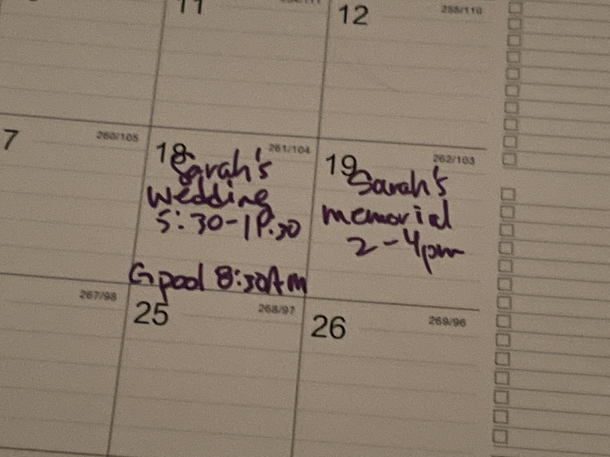 11
12
7
260/105
18
261/104
Sarah's
wedding
5:30-1P:30
G pool 8:30AM
19
262/103
Sarah's
memorial
2-4pm
267/98
25
268/97
26
269/96